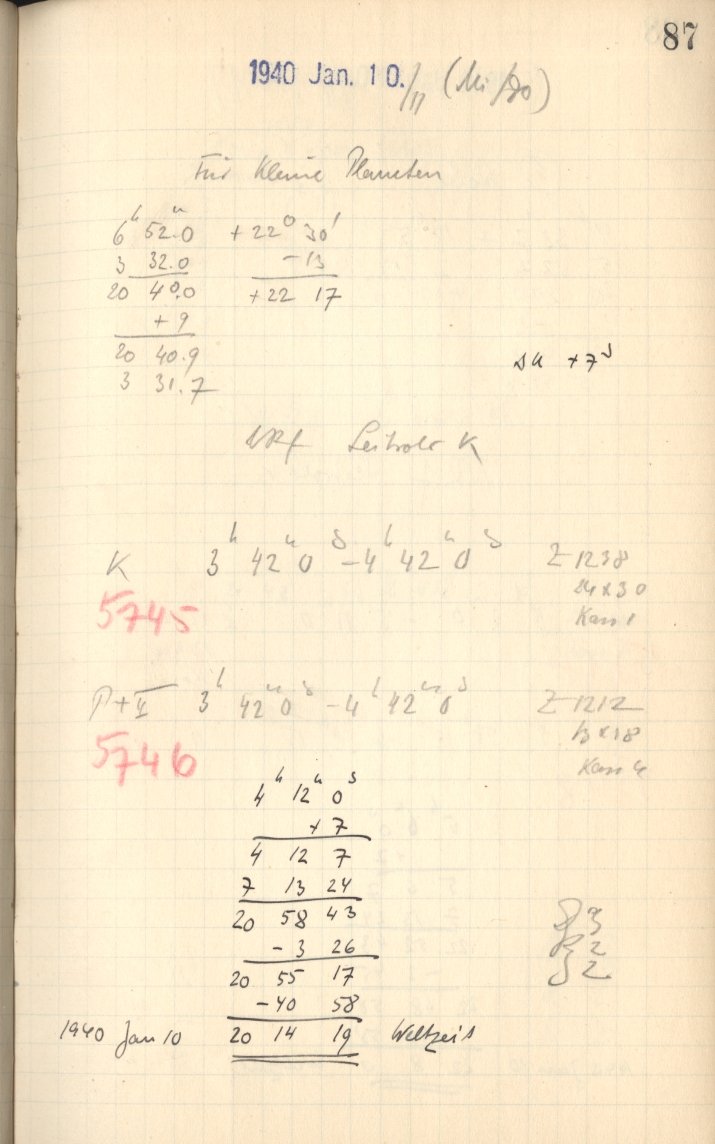 87
1940 Jan. 10./11 (Mi/Do)
Für Kleine Planeten
6h 52.0 +22° 30'
3 32.0 -13
20 40.0 +22 17
+ 9
20 40.9
3 31.7
ΔU +7s
Leitrohr K
K 3h 42m 0s - 4h 42m 0s Z 1238
24 x 30
Kass 1
5745
P+II 3h 42m 0s - 4h 42m 0s Z 1212
13 x 18
Kass 4
5746
4h 12m 0s
+ 7
4 12 7
7 13 24
20 58 43
- 3 26
20 55 17
-40 58
1940 Jan 10 20 14 19 Weltzeit
3
2
2